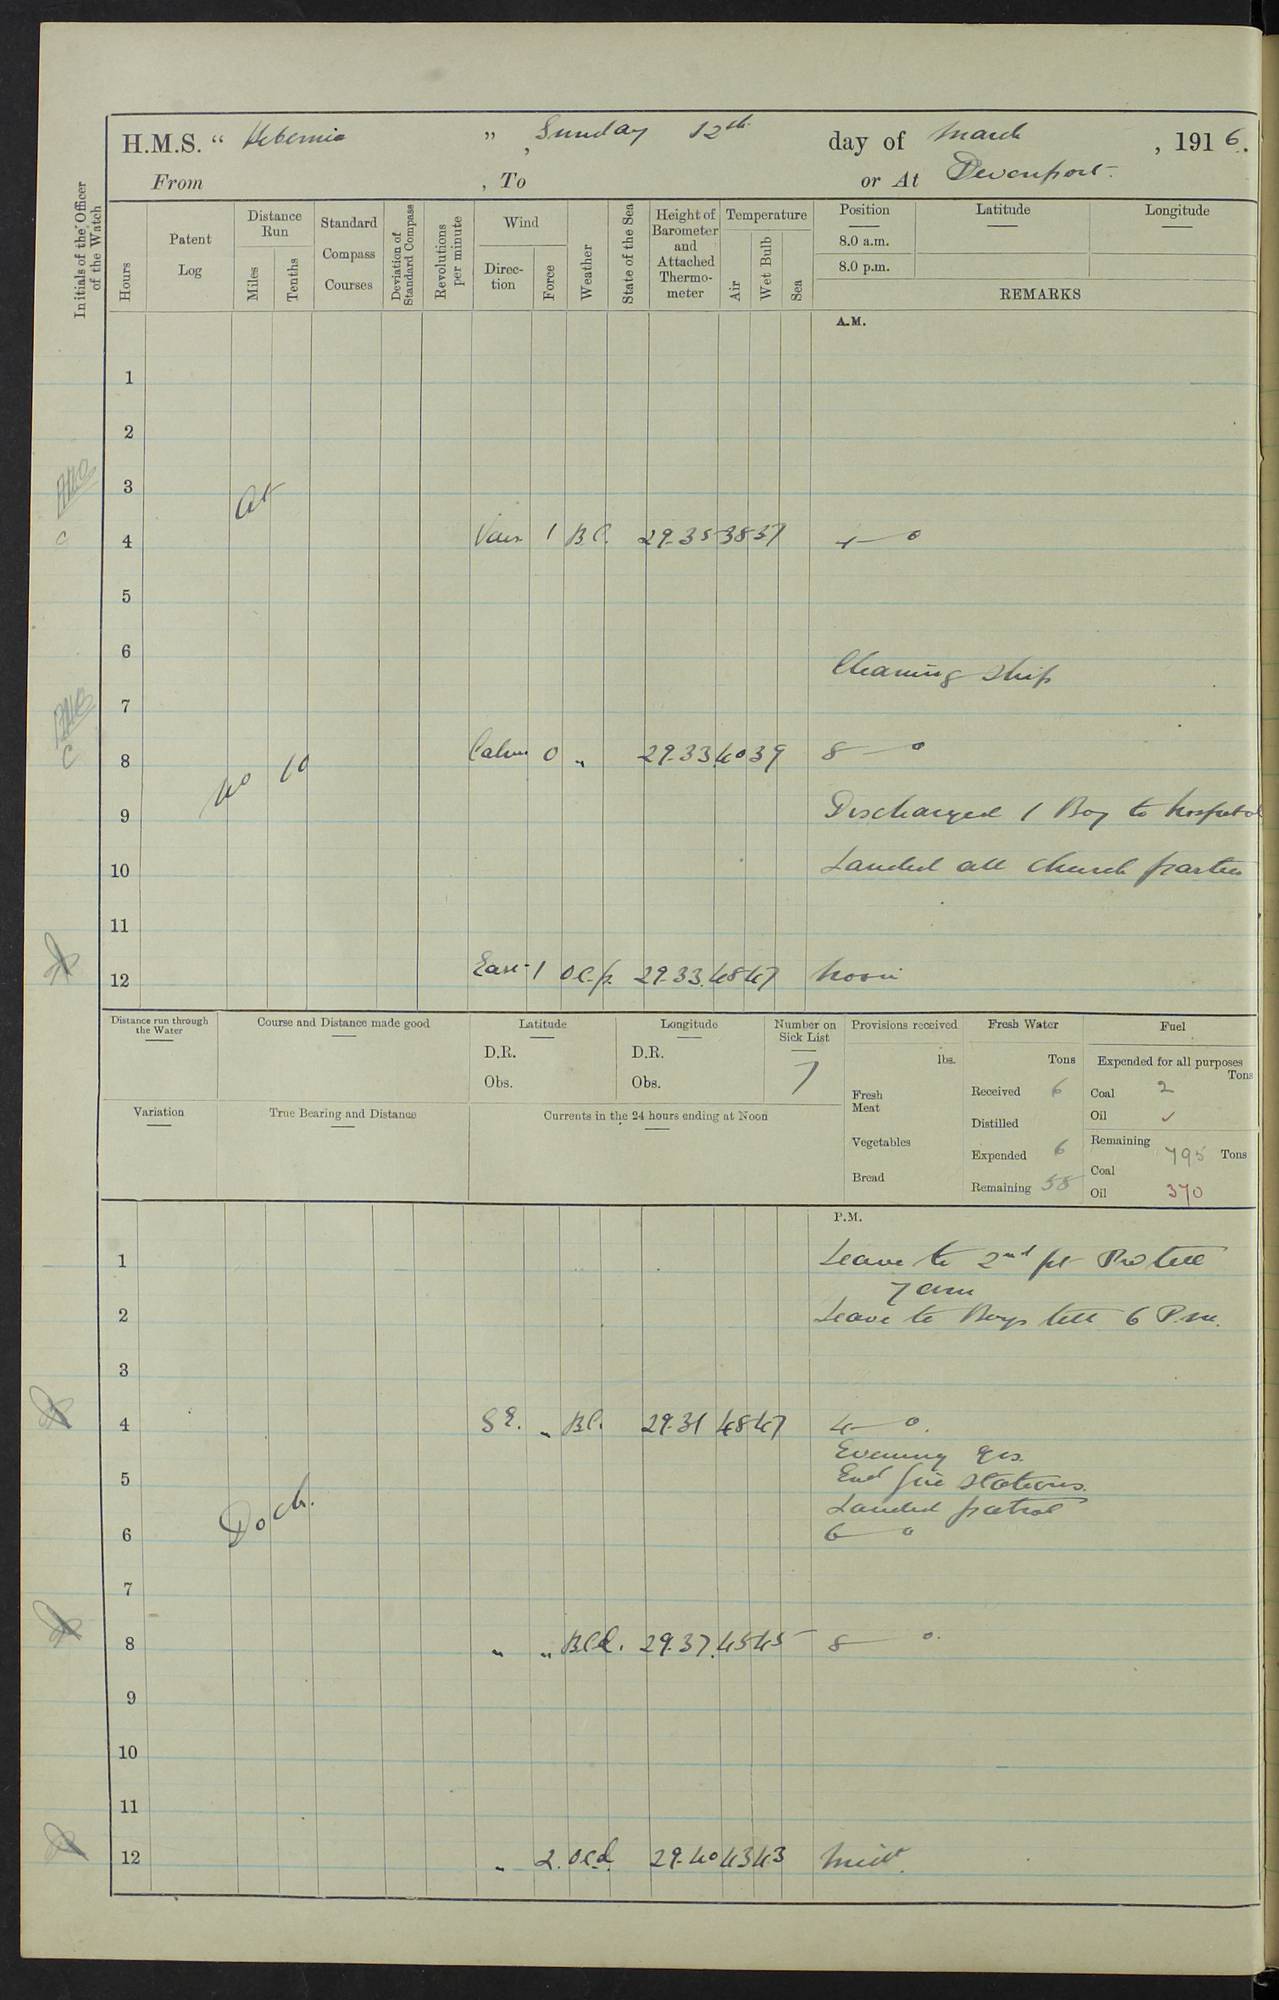 H.M.S. " Hibernia ", Sunday 12th day of March, 1916.
From , To or At Devonport.
Initials of the Officer of the Watch
Hours
Patent Log
Distance Run
Miles
Tenths
Standard Compass Courses
Deviation of Standard Compass
Revolutions per minute
Wind
Direction
Force
Weather
State of the Sea
Height of Barometer and Attached Thermometer
Temperature
Air
Wet Bulb
Sea
Position
Latitude
Longitude
8.0 a.m.
8.0 p.m.
REMARKS
A.M.
1
2
3 At
4 Var. 1 B.C. 29.35 38 37 4—0
5
6
Cleaning ship
7
8 Calm 0 " 29.33 40 39 8—0
No 10
9 Discharged 1 Boy to hospital
10 Landed all church parties
11
12 East 1 o.c.p. 29.33 48 47 Noon
Distance run through the Water
Course and Distance made good
Latitude
D.R.
Obs.
Longitude
D.R.
Obs.
Number on Sick List
7
Provisions received
lbs.
Fresh Meat
Vegetables
Bread
Fresh Water
Tons
Received 6
Distilled
Expended 6
Remaining 58
Fuel
Expended for all purposes
Tons
Coal 2
Oil ✓
Remaining
795 Tons
Coal
Oil 370
Variation
True Bearing and Distance
Currents in the 24 hours ending at Noon
P.M.
1 Leave to 2nd pt. P.W till
7 am
2 Leave to Boys till 6 P.m.
3
4 S E. " B.C. 29.31 48 47 4—0.
Evening qrs.
5 Exd fire stations.
Landed patrol
Dock.
6 6—0
7
8 " " B.C.d. 29.37 45 45 8—0.
9
10
11
12 " 2. o.c.d. 29.40 43 43 Midt.